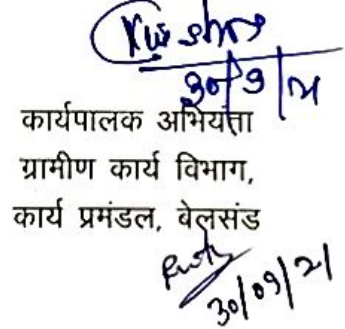 30/9/21
कार्यपालक अभियंता
ग्रामीण कार्य विभाग,
कार्य प्रमंडल, बेलसंड
30/09/21